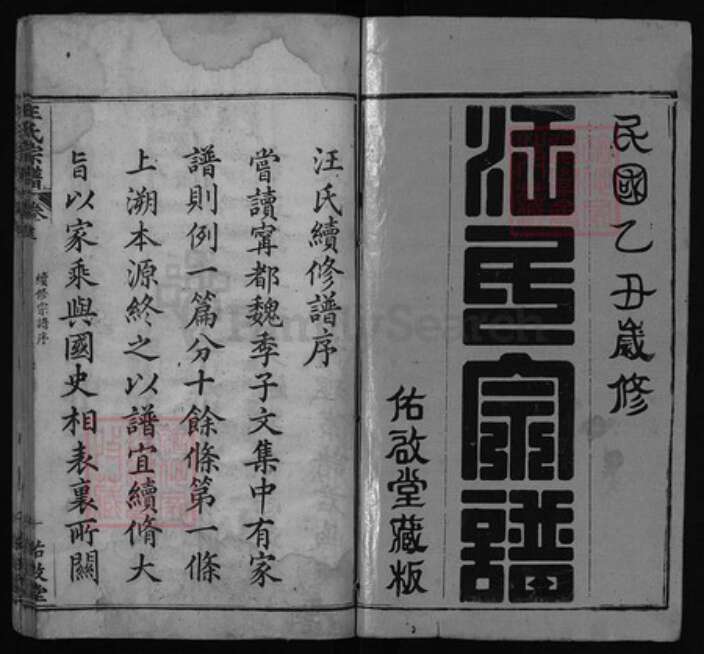 民國乙丑歲修
汪氏宗譜
佑啟堂藏板
汪氏續修譜序
嘗讀甯都魏季子文集中有家
譜則例一篇分十餘條第一條
上溯本源終之以譜宜續脩大
旨以家乘與國史相表裏所關
汪氏宗譜
卷
續修宗譜序
一
佑啟堂
FamilySearch